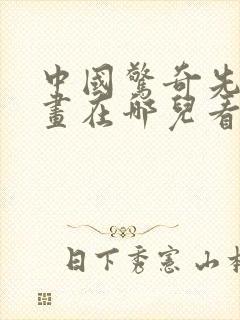 中國驚奇先
畫在哪兒看
日下秀憲 山本